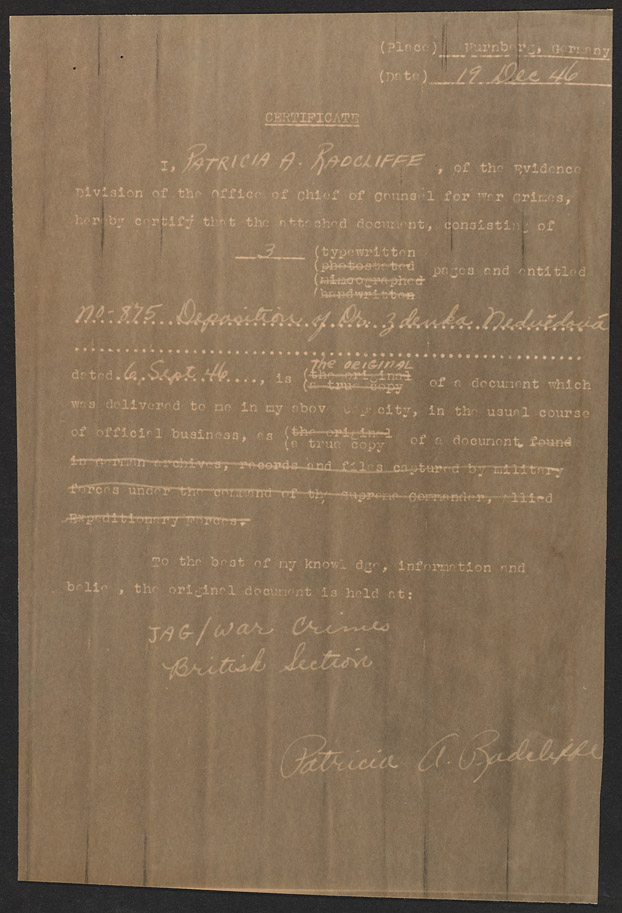 (Place) Nurnberg, Germany
(Date) 19 Dec 46
CERTIFICATE
I, PATRICIA A. RADCLIFFE, of the Evidence
Division of the Office of Chief of Counsel for War Crimes,
hereby certify that the attached document, consisting of
3 (typewritten
(photostated
(mimeographed pages and entitled
(handwritten
NO-875 Deposition of Dr. Zdenka Nedvědová
dated 6 Sept 46, is (the original THE ORIGINAL
(a true copy of a document which
was delivered to me in my above capacity, in the usual course
of official business, as (the original
(a true copy of a document found
in German archives, records and files captured by military
forces under the command of the Supreme Commander, Allied
Expeditionary Forces.
To the best of my knowledge, information and
belief, the original document is held at:
JAG/War Crimes
British Section
Patricia A. Radcliffe